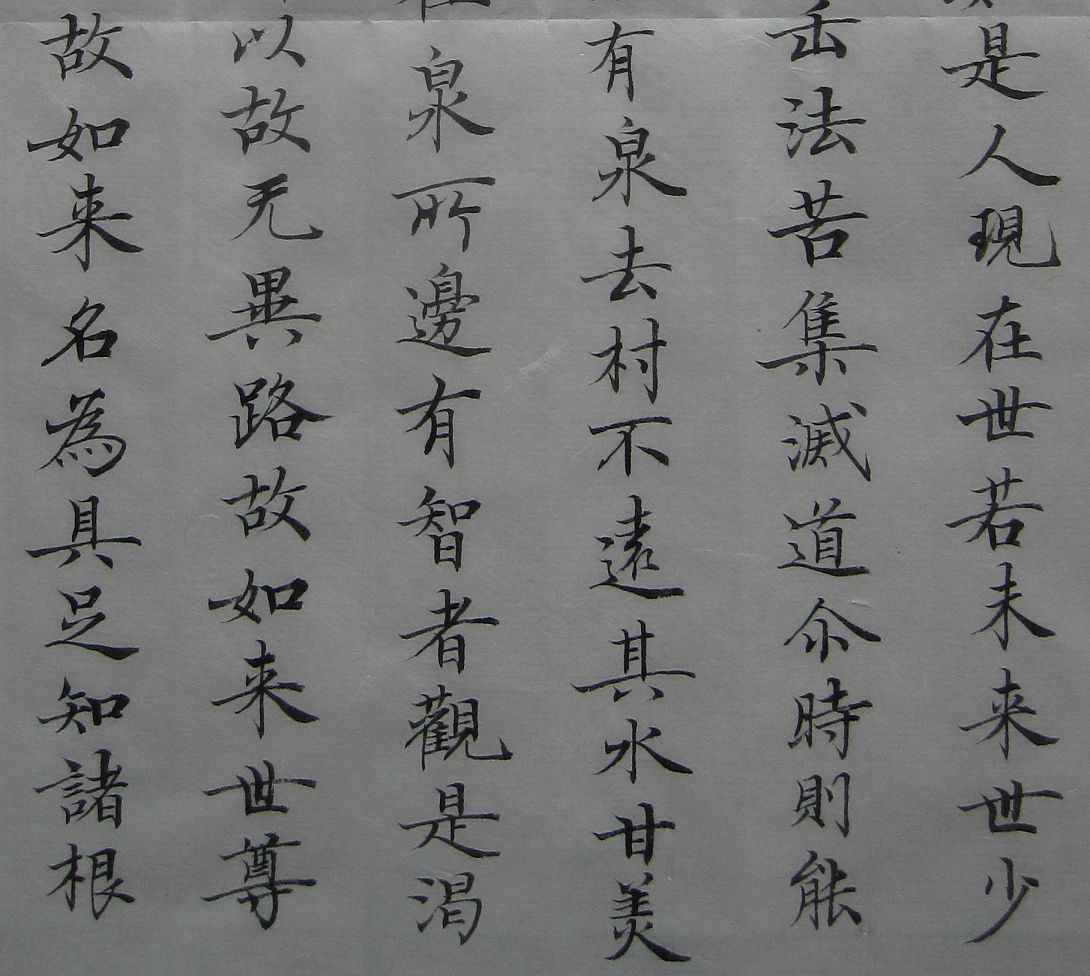 是人現在世若未来世少
法苦集滅道尒時則能
有泉去村不遠其水甘美
泉所邊有智者觀是渴
以故无異路故如来世尊
故如来名為具足知諸根